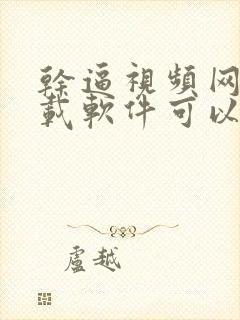 幹逼視頻网
載軟件可以
盧越